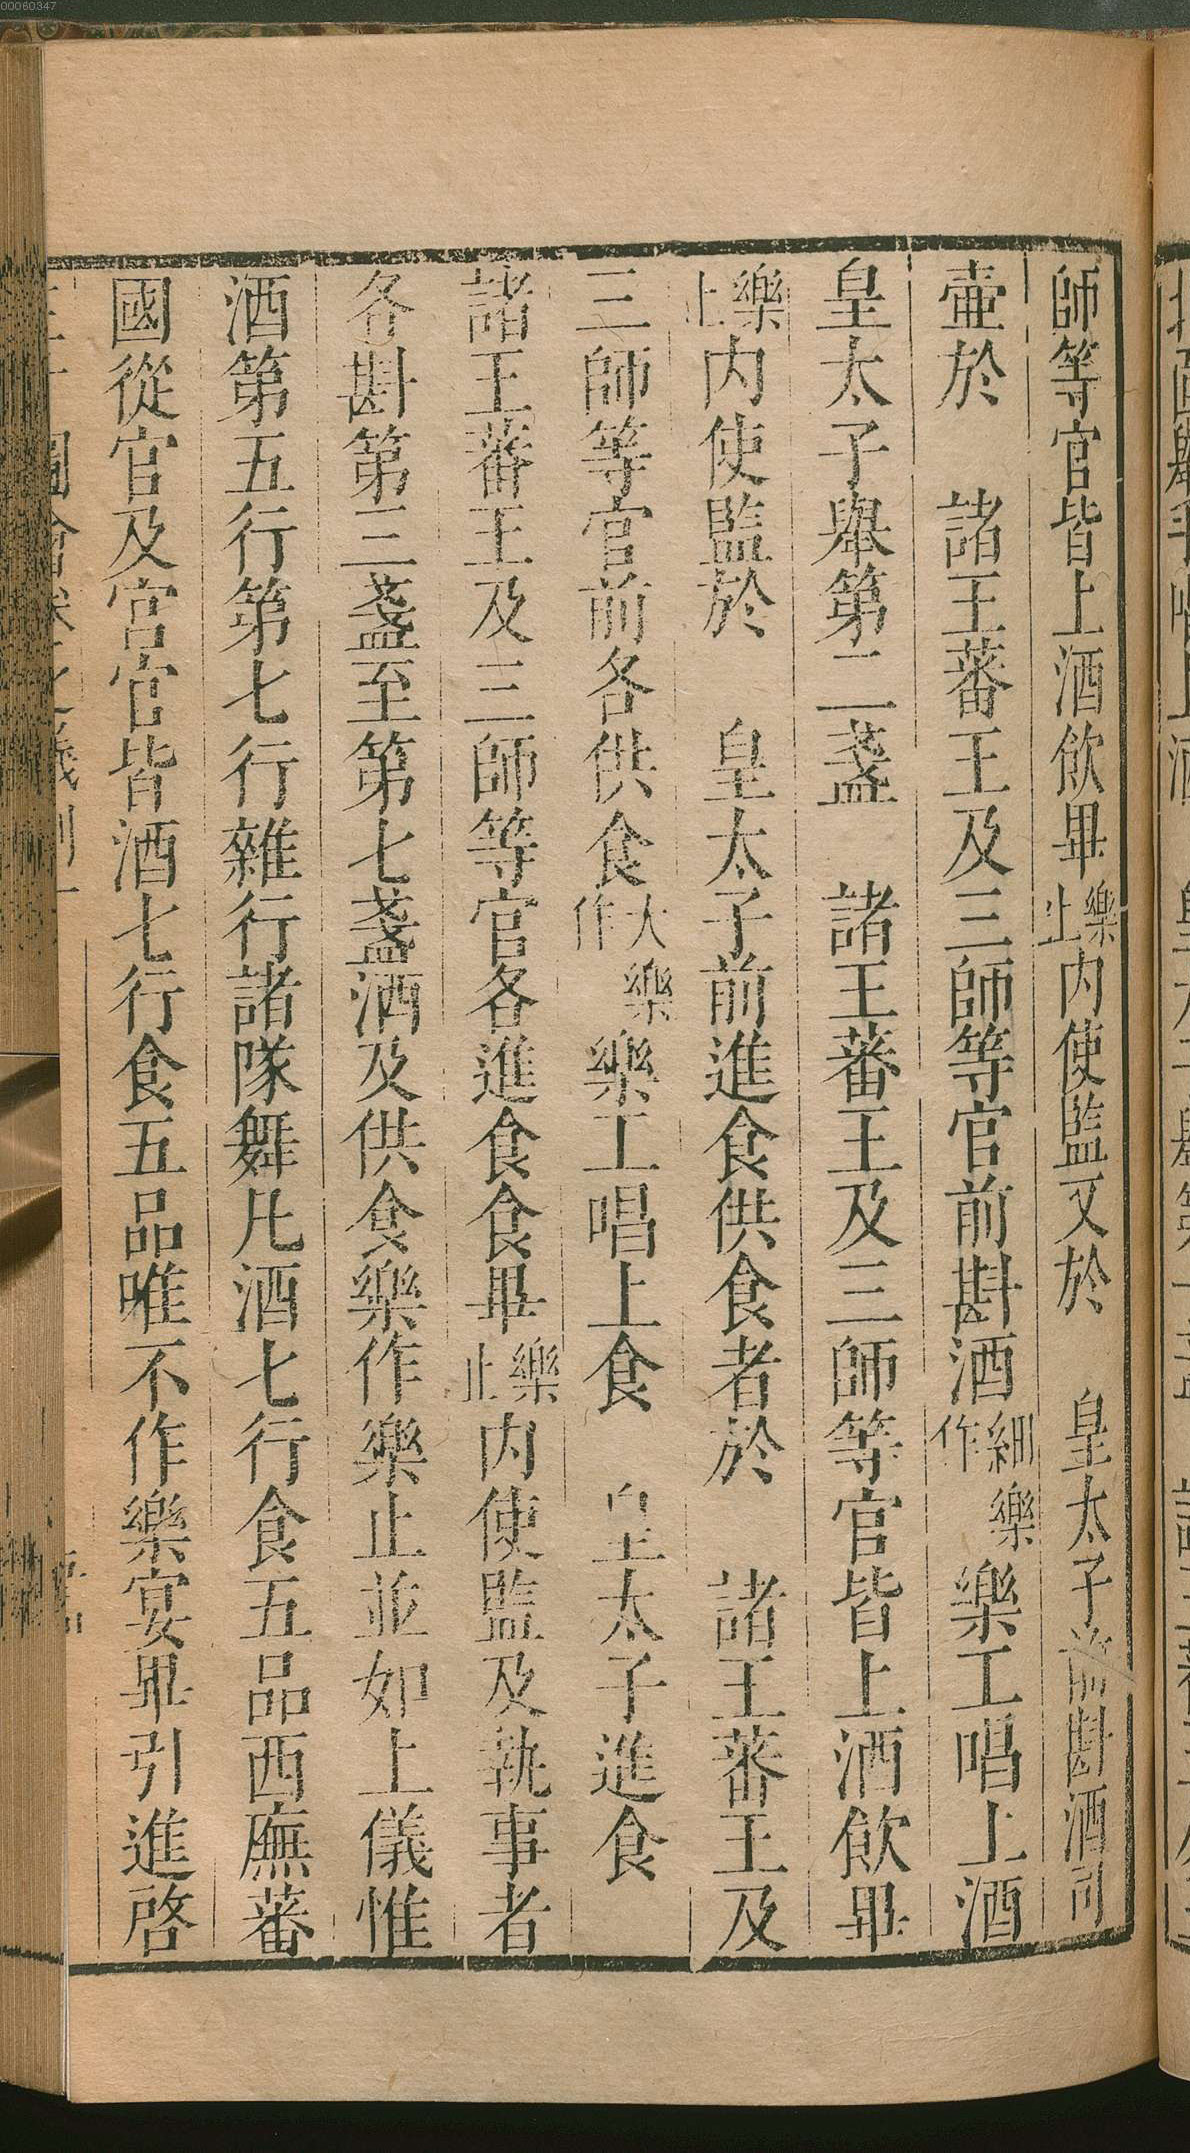 師等官皆上酒飲畢樂止内使監又於　皇太子前斟酒司
壷於　諸王蕃王及三師等官前斟酒細樂作樂工唱上酒
皇太子舉第二盞　諸王蕃王及三師等官皆上酒飲畢
樂止内使監於　皇太子前進食供食者於　諸王蕃王及
三師等官前各供食大樂作樂工唱上食　皇太子進食
諸王蕃王及三師等官各進食食畢樂止内使監及執事者
各斟第三盞至第七盞酒及供食樂作樂止並如上儀惟
酒第五行第七行雜行諸隊舞凡酒七行食五品西廡蕃
國從官及宮官皆酒七行食五品唯不作樂宴畢引進啓
00060347